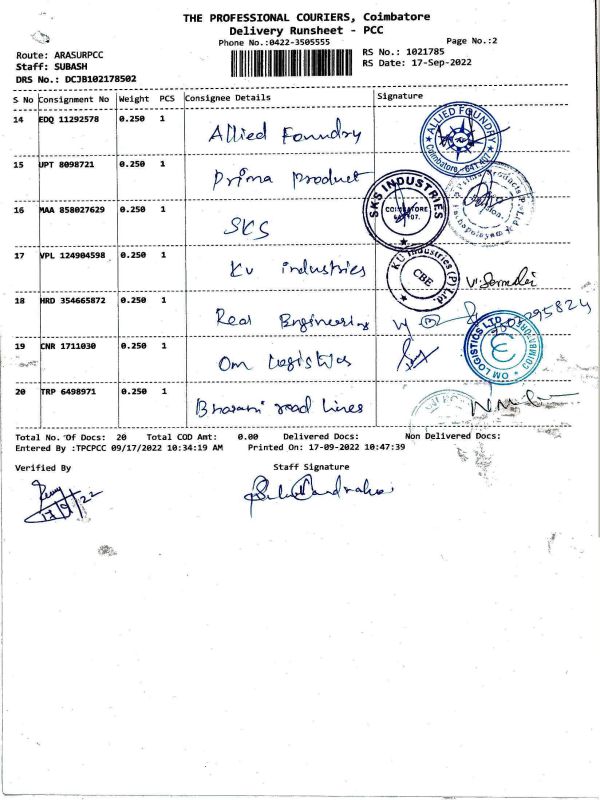 THE PROFESSIONAL COURIERS, Coimbatore
Delivery Runsheet - PCC
Phone No.:0422-3505555
Page No.:2
Route: ARASURPCC
RS No.: 1021785
Staff: SUBASH
RS Date: 17-Sep-2022
DRS No.: DCJB102178502
S No Consignment No Weight PCS Consignee Details Signature
14 EDQ 11292578 0.250 1 Allied Foundry
ALLIED FOUNDRY
Coimbatore - 641 407
15 JPT 8098721 0.250 1 Prima product
16 MAA 858027629 0.250 1 SKS
SKS INDUSTRIES
COIMBATORE
641 407.
17 VPL 124904598 0.250 1 KU industries
KU Industries (P) Ltd.
CBE
18 HRD 354665872 0.250 1 Real Engineering
19 CNR 1711030 0.250 1 Om Logistics
OM LOGISTICS LTD
20 TRP 6498971 0.250 1 Bharani road lines
Total No. Of Docs: 20 Total COD Amt: 0.00 Delivered Docs: Non Delivered Docs:
Entered By :TPCPCC 09/17/2022 10:34:19 AM Printed On: 17-09-2022 10:47:39
Verified By Staff Signature
17/9/22